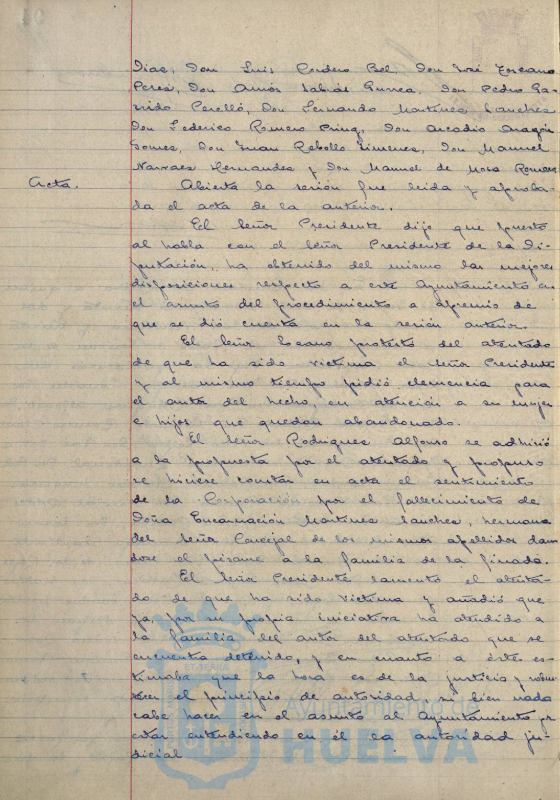 Diaz, Don Luis Cordero Bel, Don José Toscano
Perez, Don Amós Sabrás Gurrea, Don Pedro Ga-
rrido Perelló, Don Fernando Martinez Sanchez
Don Federico Romero Don Arcadio Aragón
Gomez, Don Juan Rebollo Jimenez, Don Manuel
Narvaez Hernandez y Don Manuel de Mora Romero
Acta.
Abierta la sesión fue leida y aproba-
da el acta de la anterior.
El Señor Presidente dijo que puesto
al habla con el Señor Presidente de la Di-
putación, ha obtenido del mismo las mejores
disposiciones respecto a este Ayuntamiento en
el asunto del procedimiento a apremio de
que se dió cuenta en la sesión anterior.
El Señor protestó del atentado
de que ha sido victima el Señor Presidente
y al mismo tiempo pidió clemencia para
el autor del hecho, en atención a su mujer
e hijos que quedan abandonado.
El Señor Rodriguez Alfonso se adhirió
a la propuesta por el atentado y propuso
se hiciese constar en acta el sentimiento
de la Corporación por el fallecimiento de
Doña Encarnación Martinez Sanchez, hermana
del Señor Concejal de los mismos apellidos dan
dose el pésame a la familia de la finada.
El Señor Presidente lamentó el atenta-
do de que ha sido victima y añadió que
ya, por su propia iniciativa ha atendido a
la familia del autor del atentado que se
encuentra detenido, y en cuanto a éste es-
timaba que la hora es de la justicia y robus-
tecer el principio de autoridad, si bien nada
cabe hacer en el asunto al Ayuntamiento por
estar entendiendo en él la autoridad ju-
dicial
Ayuntamiento de
HUELVA